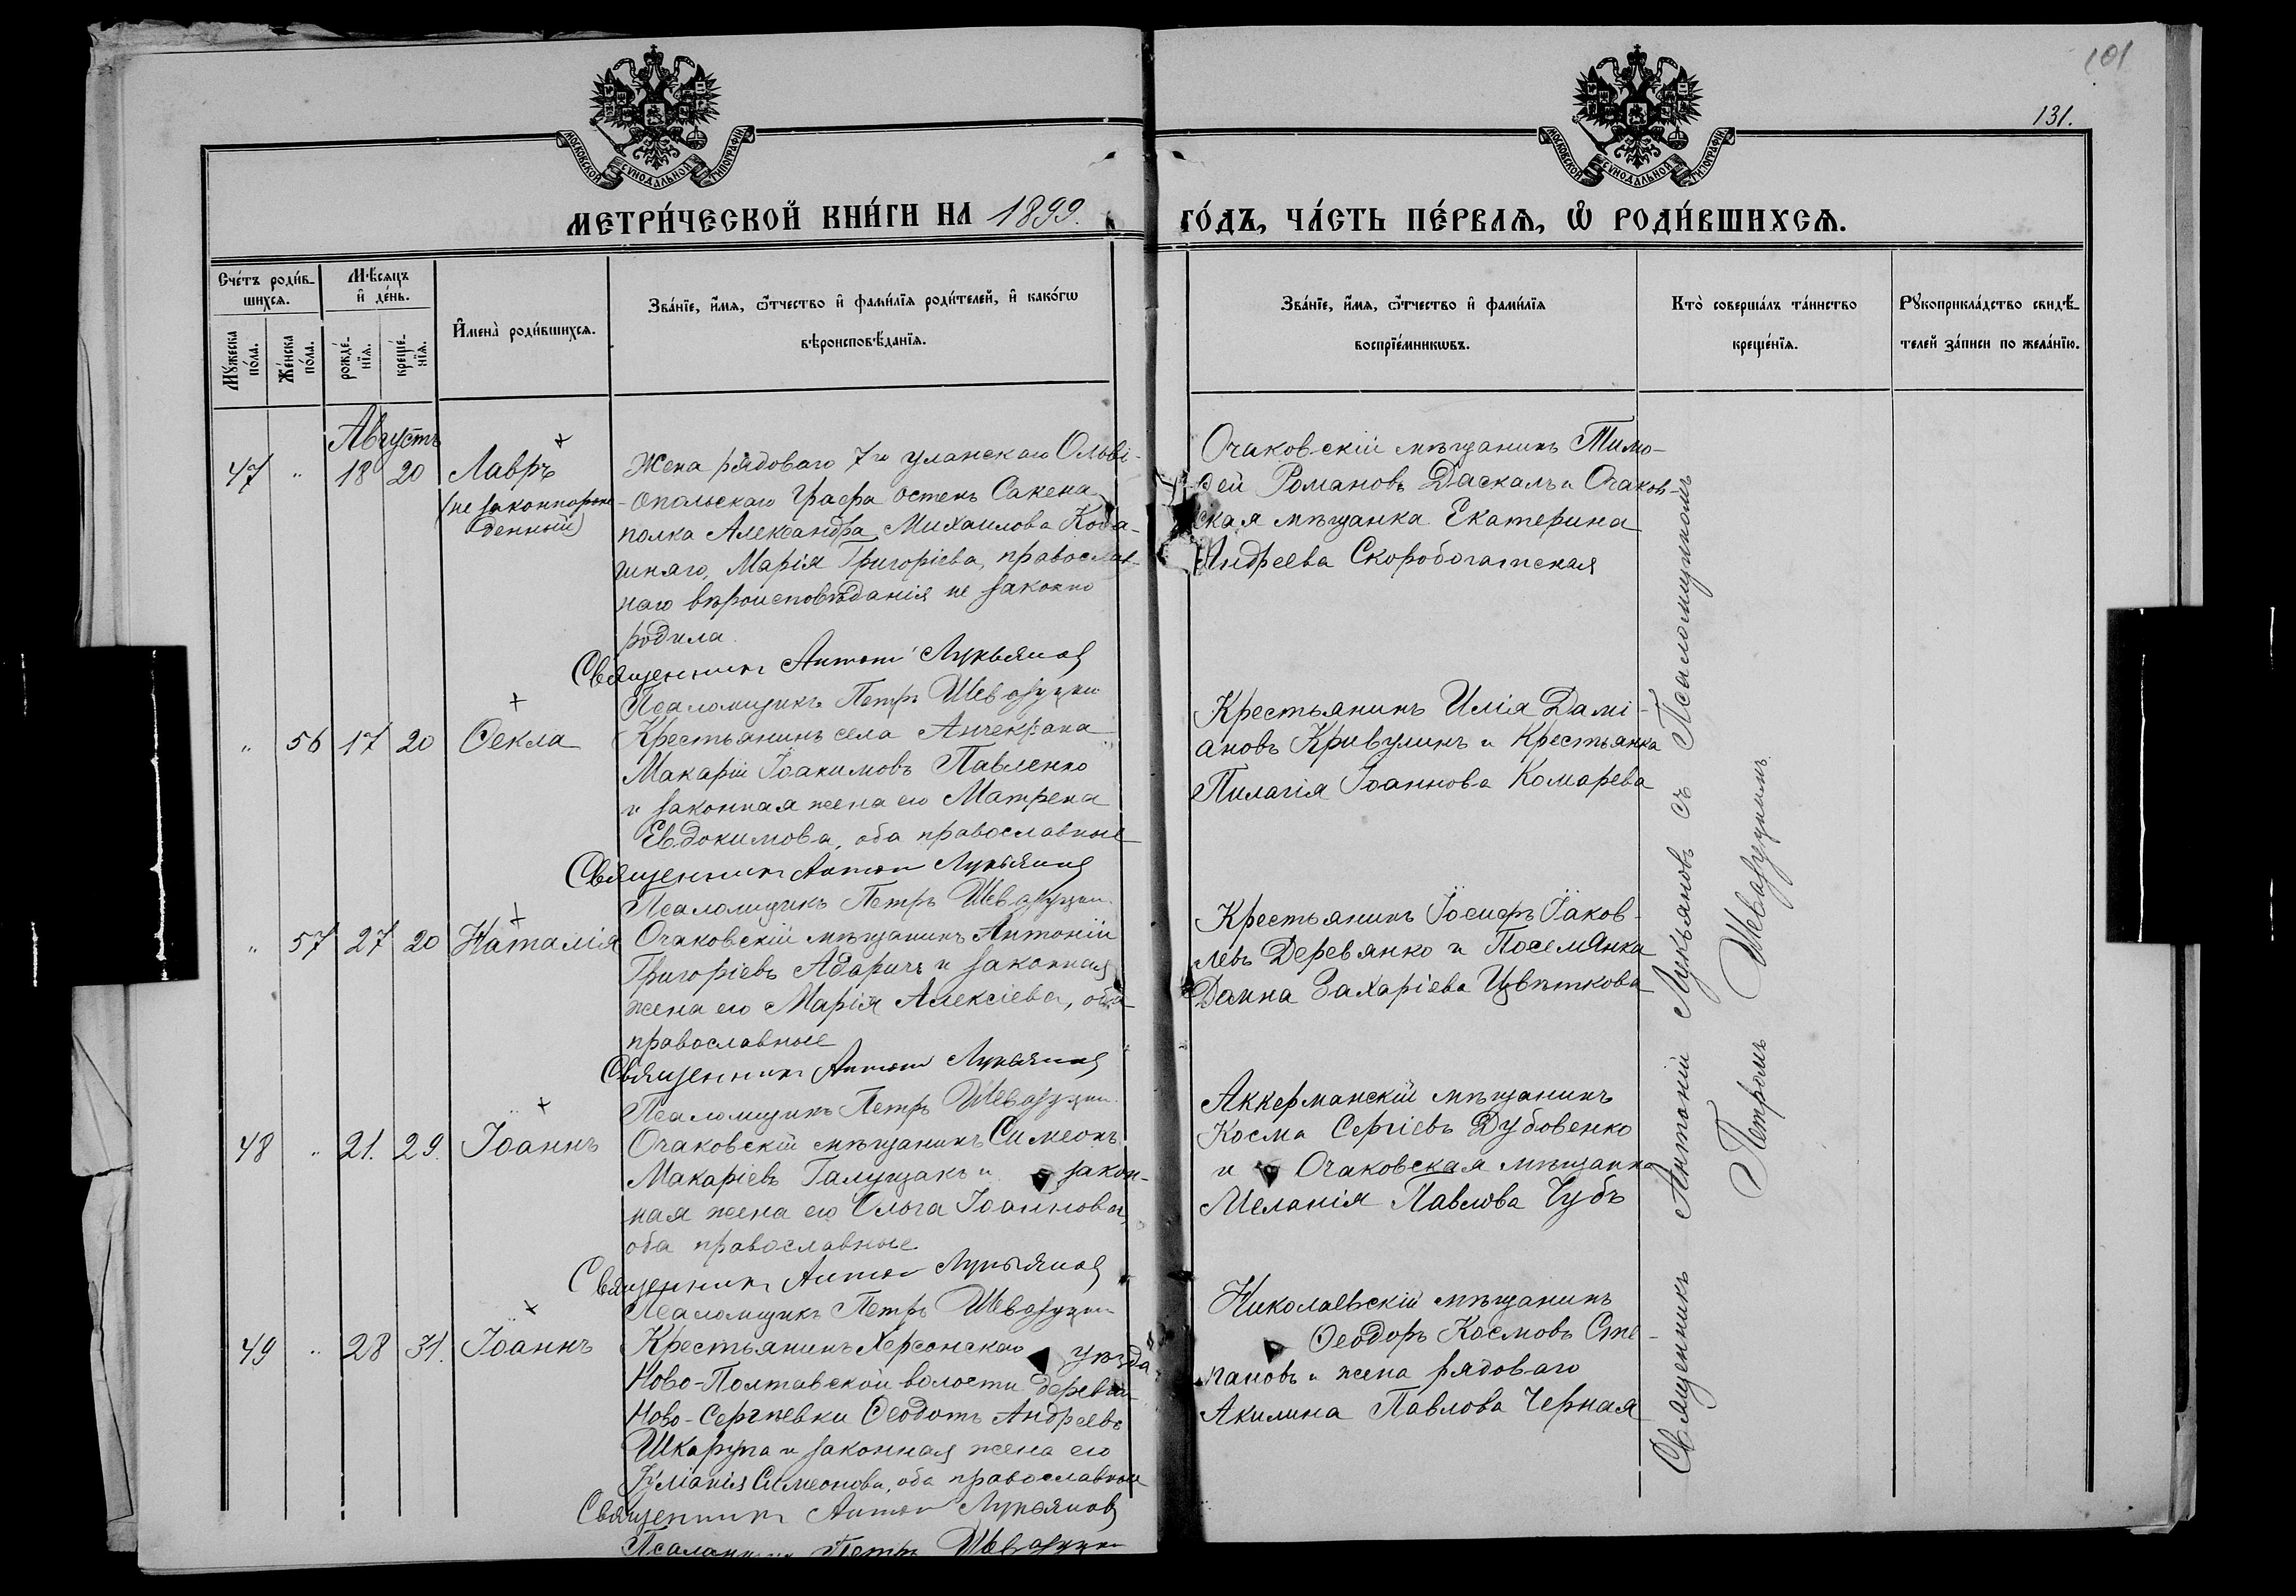 101
131.
МОСКОВСКОЙ СѴНОДАЛЬНОЙ ТИПОГРАФІИ
МОСКОВСКОЙ СѴНОДАЛЬНОЙ ТИПОГРАФІИ
МЕТРИ́ЧЕСКОЙ КНИ́ГИ НА 1899. ГО́ДЪ, ЧА́СТЬ ПЕ́РВАѦ, Ѡ РОДИ́ВШИХСѦ.
Сче́тъ роди́в-
шихсѧ.
Мꙋжеска
по́ла.
Же́нска
по́ла.
Мѣ́сѧцъ
и҆ де́нь.
рожде́-
нїѧ.
креще́-
нїѧ.
И҆мена̀ роди́вшихсѧ.
Зва́нїе, и҆́мѧ, ѻ҆́тчество и҆ фами́лїѧ роди́телей, и҆ како́гѡ
вѣроисповѣ́данїѧ.
Зва́нїе, и҆́мѧ, ѻ҆́тчество и҆ фами́лїѧ
воспрїе́мникѡвъ.
Кто̀ соверша́лъ та́инство
креще́нїѧ.
Рꙋкоприкла́дство свидѣ́-
телей за́писи по жела́нїю.
Августъ
47 " 18 20 Лавръ
(не законнорож-
денный)
Жена рядоваго 7го уланскаго Ольві-
опольскаго Графа Остенъ Сакена
полка Александра Михаилова Кода-
шняго, Марія Григоріева, православ-
наго вѣроисповѣданія не законно
родила.
Священникъ Антоній Лукьянов
Псаломщикъ Петръ
Очаковскій мѣщанинъ Тимо-
ѳей Романовъ Даскалъ и Очаков-
ская мѣщанка Екатерина
Андреева Скоробогатская
" 56 17 20 Ѳекла
Крестьянинъ села Анчекрака
Макарій Іоакимовъ Павленко
и законная жена его Матрена
Евдокимова, оба православные
Священникъ Антоній Лукьянов
Псаломщикъ Петръ
Крестьянинъ Илія Дамі-
ановъ Кривулинъ и Крестьянка
Пилагія Іоаннова Комарева
" 57 27 20 Наталія
Очаковскій мѣщанинъ Антоній
Григоріевъ Адаричъ и законная
жена его Марія Алексіева, оба
православные
Священникъ Антоній Лукьянов
Псаломщикъ Петръ
Крестьянинъ Іосифъ Іаков-
левъ Деревянко и Поселянка
Данна Захаріева Цвѣткова
48 " 21. 29. Іоаннъ
Очаковскій мѣщанинъ Симеонъ
Макаріевъ Галущакъ и закон-
ная жена его Ольга Іоаннова,
оба православные
Священникъ Антоній Лукьянов
Псаломщикъ Петръ
Аккерманскій мѣщанинъ
Косма Сергіевъ Дубовенко
и Очаковская мѣщанка
Меланія Павлова Чубъ
49 " 28 31. Іоаннъ
Крестьянинъ Херсонскаго уѣзда
Ново-Полтавской волости деревни
Ново-Сергѣевки Ѳеодотъ Андреевъ
Шкарупа и законная жена его
Іуліанія Симеонова, оба православные
Священникъ Антоній Лукьянов
Псаломщикъ Петръ
Николаевскій мѣщанинъ
Ѳеодоръ Космовъ Сте-
пановъ и жена рядоваго
Акилина Павлова Черная
Священникъ Антоній Лукьяновъ съ Псаломщикомъ
Петромъ